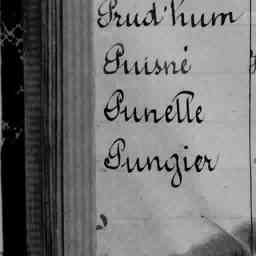 Prud'hum
Puisné
Punelle
Pungier